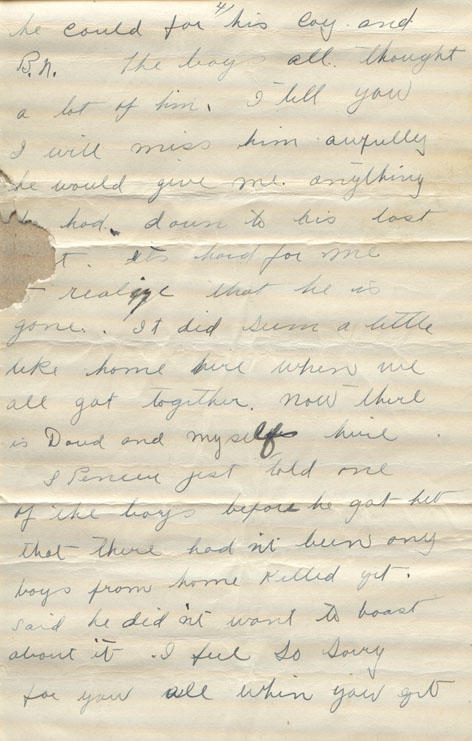 4/
he could for his Coy. and
B.N. The boys all thought
a lot of him. I tell you
I will miss him awfully
he would give me anything
had. down to his last
t. its hard for me
realize that he is
gone. It did seem a little
like home here when we
all got together. Now there
is Doud and myself here.
Spencer just told one
of the boys before he got hit
that there had n't been any
boys from home Killed yet.
said he did n't want to boast
about it. I feel so sorry
for you all when you get